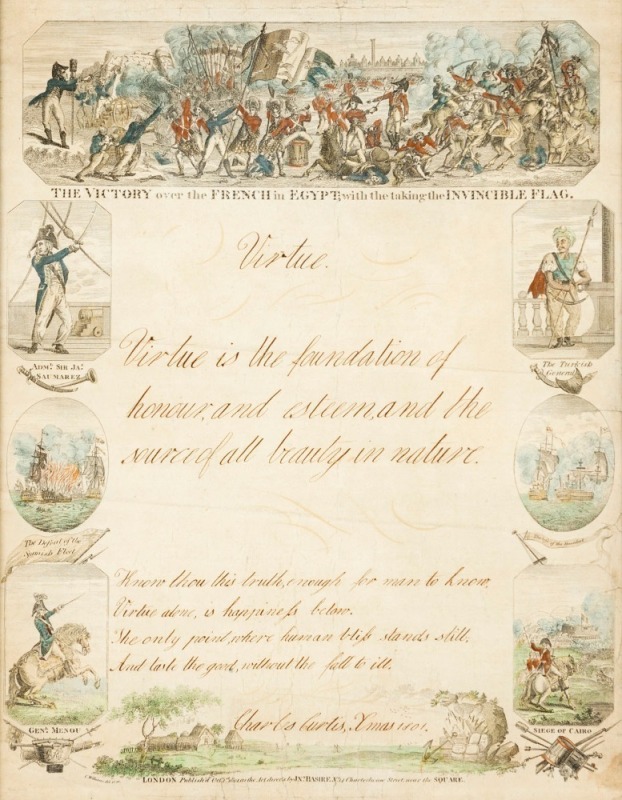 THE VICTORY over the FRENCH in EGYPT, with the taking the INVINCIBLE FLAG.
Virtue.
Virtue is the foundation of
honour, and esteem, and the
source of all beauty in nature.
ADML. SIR JAS.
SAUMAREZ
The Turkish
General
The Defeat of the
Spanish Fleet
of the
Know thou this truth, enough for man to know,
Virtue alone, is happiness below.
The only point, where human bliss stands still.
And taste the good, without the fall to ill.
GENL. MENOU
SIEGE OF CAIRO
Charles Curtis, Xmas 1801.
LONDON Published the Act directs by JNO. BASIRE, Charterhouse Street, near the SQUARE.